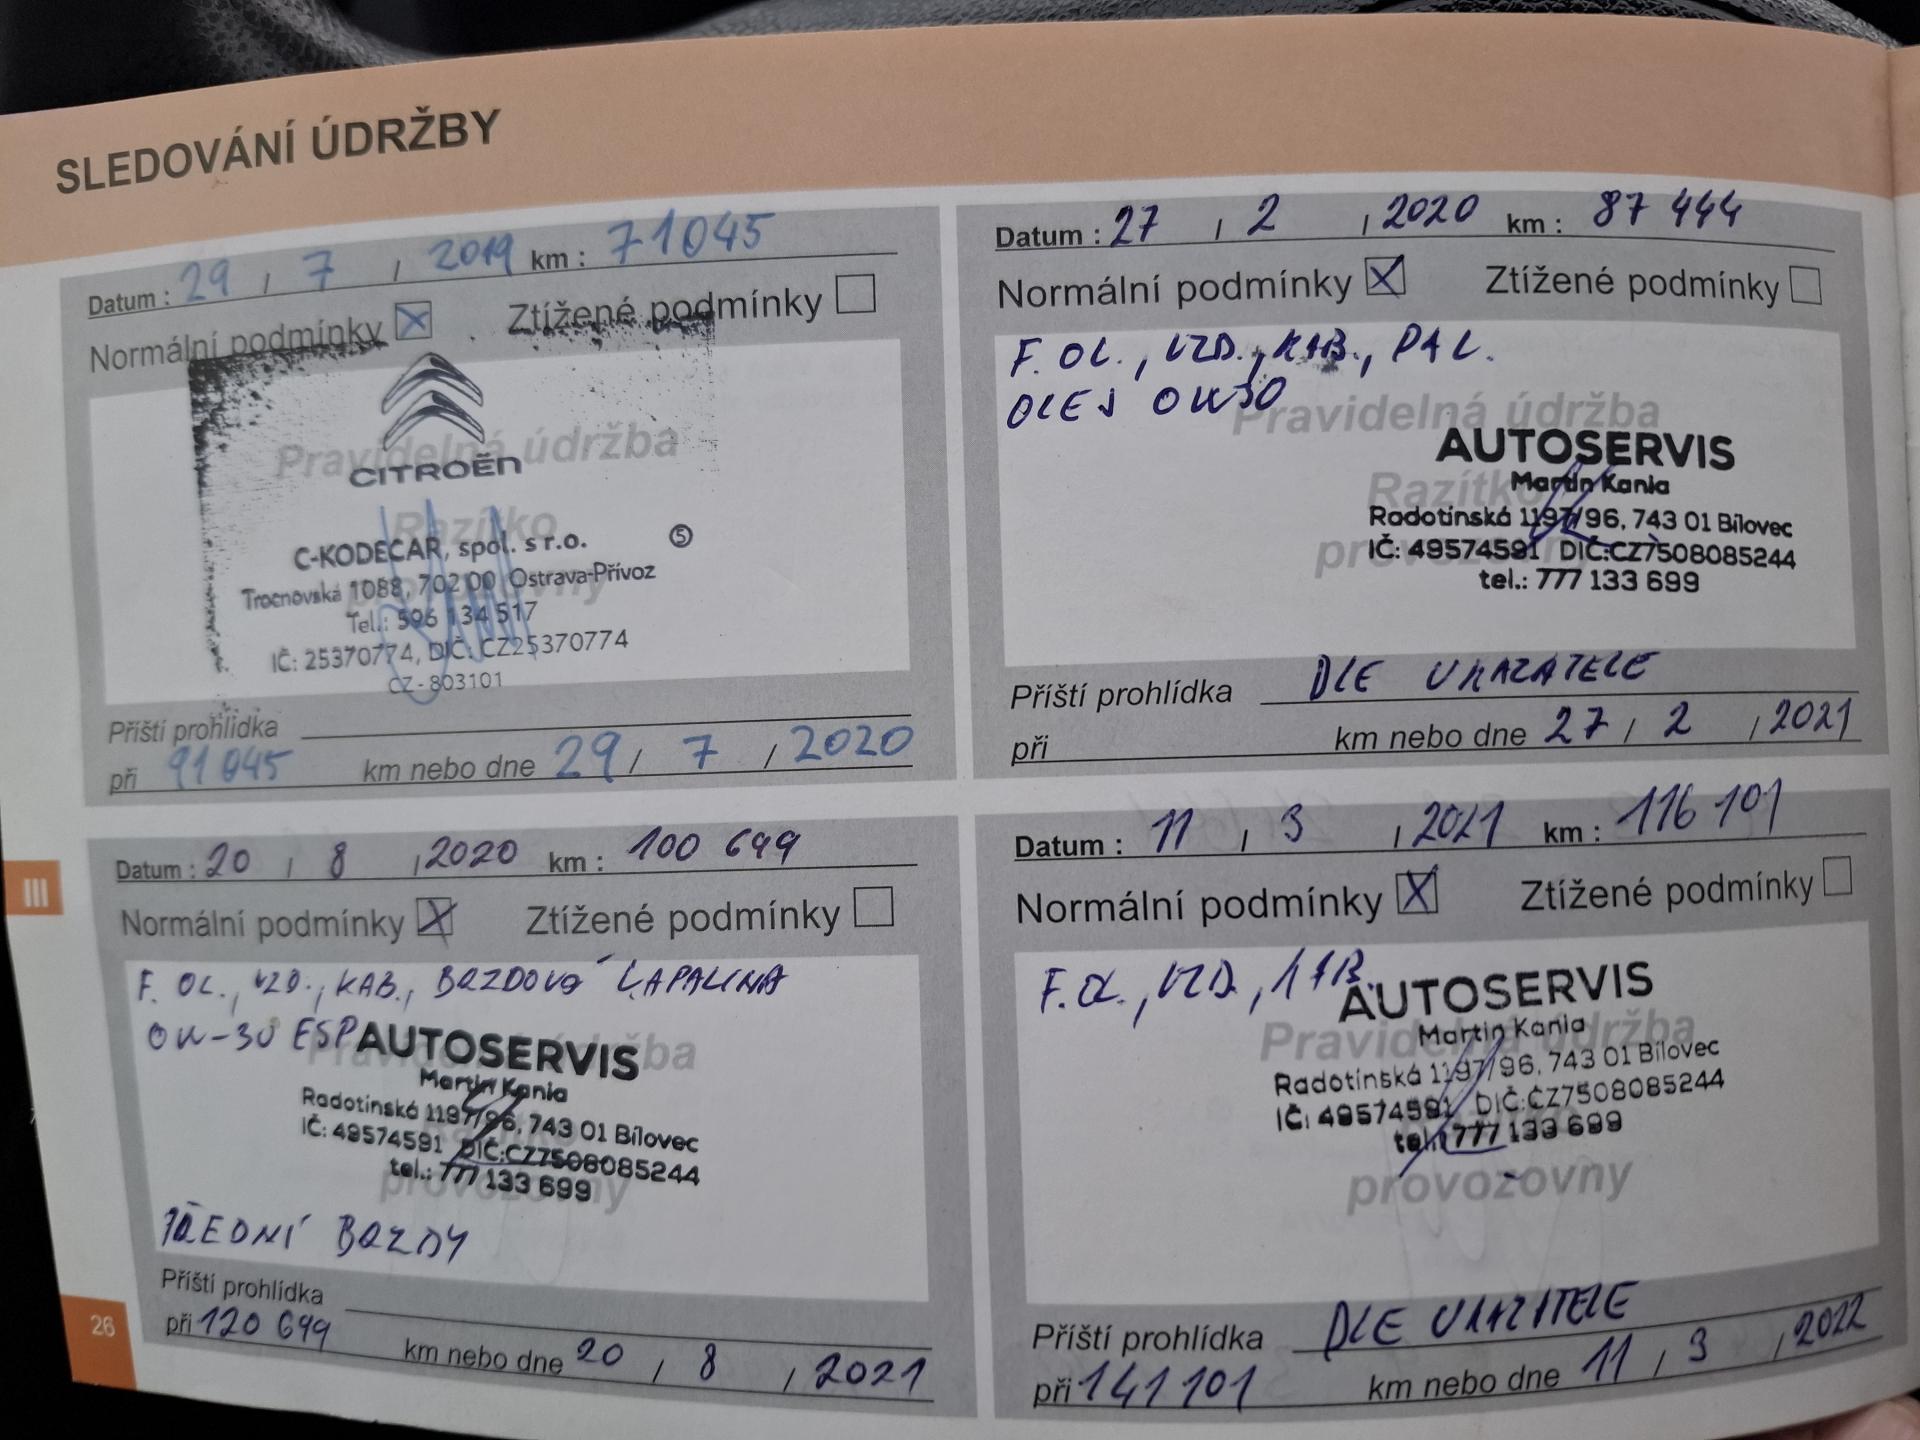 SLEDOVÁNÍ ÚDRŽBY
Datum : 29 / 7 / 2019 km : 71045
Normální podmínky Ztížené podmínky
Pravidelná údržba
CITROËN
Razítko
C-KODECAR, spol. s r.o. 5
Trocnovská 1088, 702 00 Ostrava-Přívoz
Tel.: 596 134 517
IČ: 25370774, DIČ: CZ25370774
CZ - 803101
Příští prohlídka
při 91045 km nebo dne 29 / 7 / 2020
Datum : 27 / 2 / 2020 km : 87 444
Normální podmínky Ztížené podmínky
F. OL., VZD., KAB., PAL.
OLEJ 0W30
Pravidelná údržba
AUTOSERVIS
Razítko
Martin Kania
Radotínská 1197/96, 743 01 Bílovec
provozovny
IČ: 49574591 DIČ:CZ7508085244
tel.: 777 133 699
Příští prohlídka DLE UKAZATELE
při km nebo dne 27 / 2 / 2021
Datum : 20 / 8 / 2020 km : 100 699
Normální podmínky Ztížené podmínky
F. OL., VZD., KAB., BRZDOVÁ KAPALINA
0W-30 ESP
AUTOSERVIS
Martin Kania
Radotínská 1197/96, 743 01 Bílovec
IČ: 49574591 DIČ:CZ7508085244
tel.: 777 133 699
provozovny
PŘEDNÍ BRZDY
Příští prohlídka
při 120 699 km nebo dne 20 / 8 / 2021
Datum : 11 / 3 / 2021 km : 116 101
Normální podmínky Ztížené podmínky
F. OL., VZD., KAB.
AUTOSERVIS
Martin Kania
Pravidelná údržba
Radotínská 1197/96, 743 01 Bílovec
IČ: 49574591 DIČ:CZ7508085244
tel.: 777 133 699
provozovny
Příští prohlídka DLE UKAZATELE
při 141 101 km nebo dne 11 / 3 / 2022
III
26